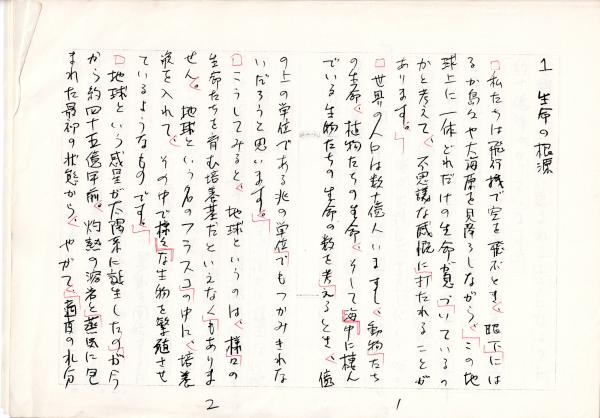 1 生命の根源
私たちは飛行機で空を飛ぶとき、眼下には
るか島々や大海原を見降ろしながら、この地
球上に一体どれだけの生命が息づいているの
かと考えて、不思議な感慨に打たれることが
あります。
世界の人口は数十億人いますし、動物たち
の生命、植物たちの生命、そして海中に棲ん
でいる生物たちの生命の数を考えるとき、億
の上の単位である兆の単位でもつかみきれな
いだろうと思います。
こうしてみると、地球というのは、様々の
生命たちを育む培養基だといえなくもありま
せん。地球という名のフラスコの中に、培養
液を入れて、その中で様々な生物を繁殖させ
ているようなものです。
地球という惑星が太陽系に誕生したのが今
から約四十五億年前、灼熱の溶岩と蒸気に包
まれた最初の状態から、やがて、適度の水分
1
2